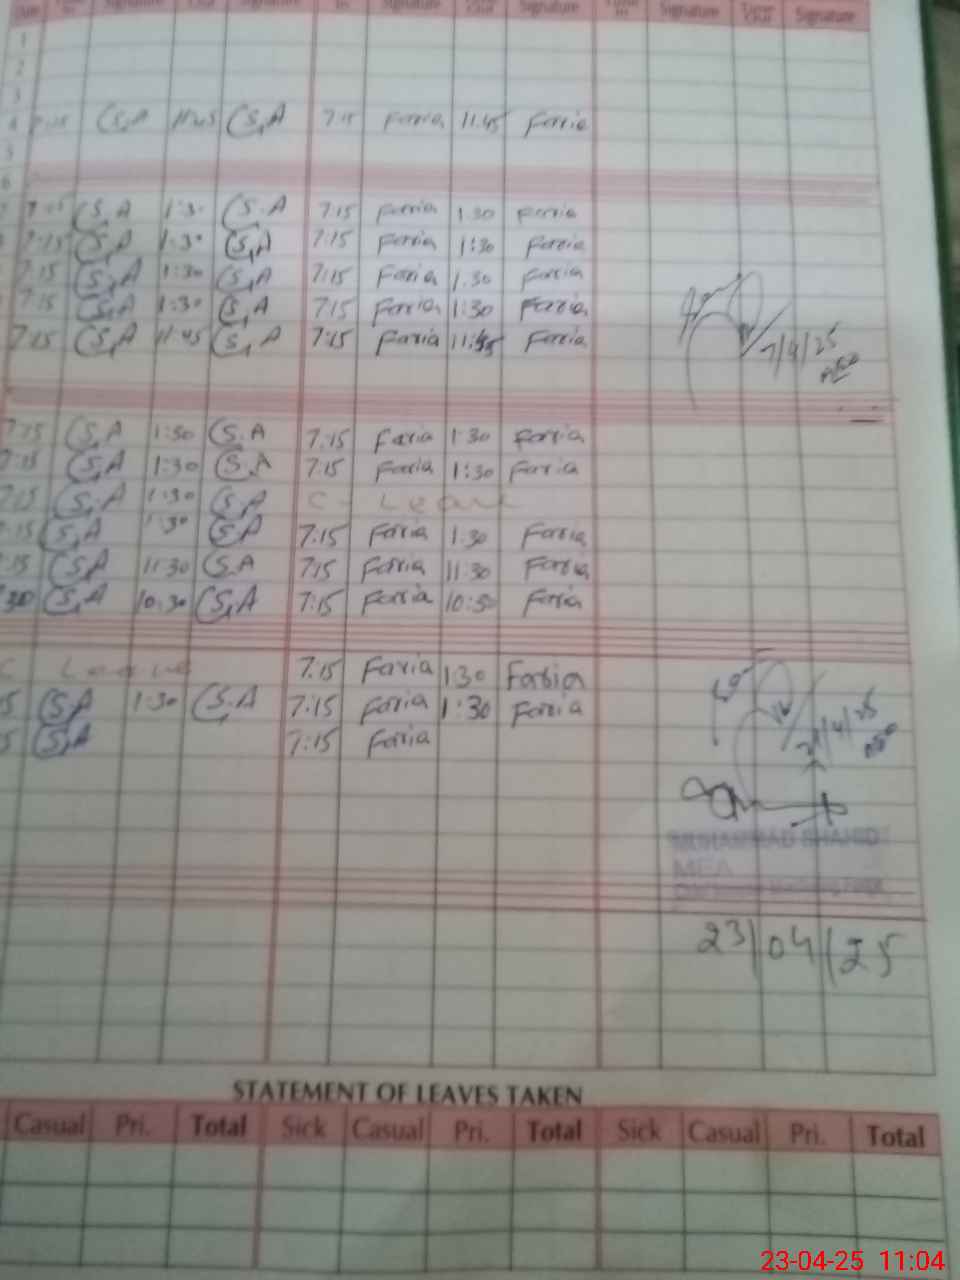 Date In Signature Out Signature In Signature Out Signature Time In Signature Time Out Signature
1
2
3
4 7:15 S.A 11:45 S.A 7:15 Faria 11:45 Faria
5
6
7:15 S.A 1:30 S.A 7:15 Faria 1:30 Faria
7:15 S.A 1:30 S.A 7:15 Faria 1:30 Faria
7:15 S.A 1:30 S.A 7:15 Faria 1:30 Faria
7:15 S.A 1:30 S.A 7:15 Faria 1:30 Faria
7:15 S.A 11:45 S.A 7:15 Faria 11:45 Faria
7/4/25
7:15 S.A 1:30 S.A 7:15 Faria 1:30 Faria
7:15 S.A 1:30 S.A 7:15 Faria 1:30 Faria
7:15 S.A 1:30 S.A C - Leave
7:15 S.A 1:30 S.A 7:15 Faria 1:30 Faria
:15 S.A 11:30 S.A 7:15 Faria 11:30 Faria
S.A 10:30 S.A 7:15 Faria 10:30 Faria
C Leave 7:15 Faria 1:30 Faria
5 S.A 1:30 S.A 7:15 Faria 1:30 Faria
5 S.A 7:15 Faria
21/4/25
MUHAMMAD SHAHID
MEA
23/04/25
STATEMENT OF LEAVES TAKEN
Casual Pri. Total Sick Casual Pri. Total Sick Casual Pri. Total
23-04-25 11:04